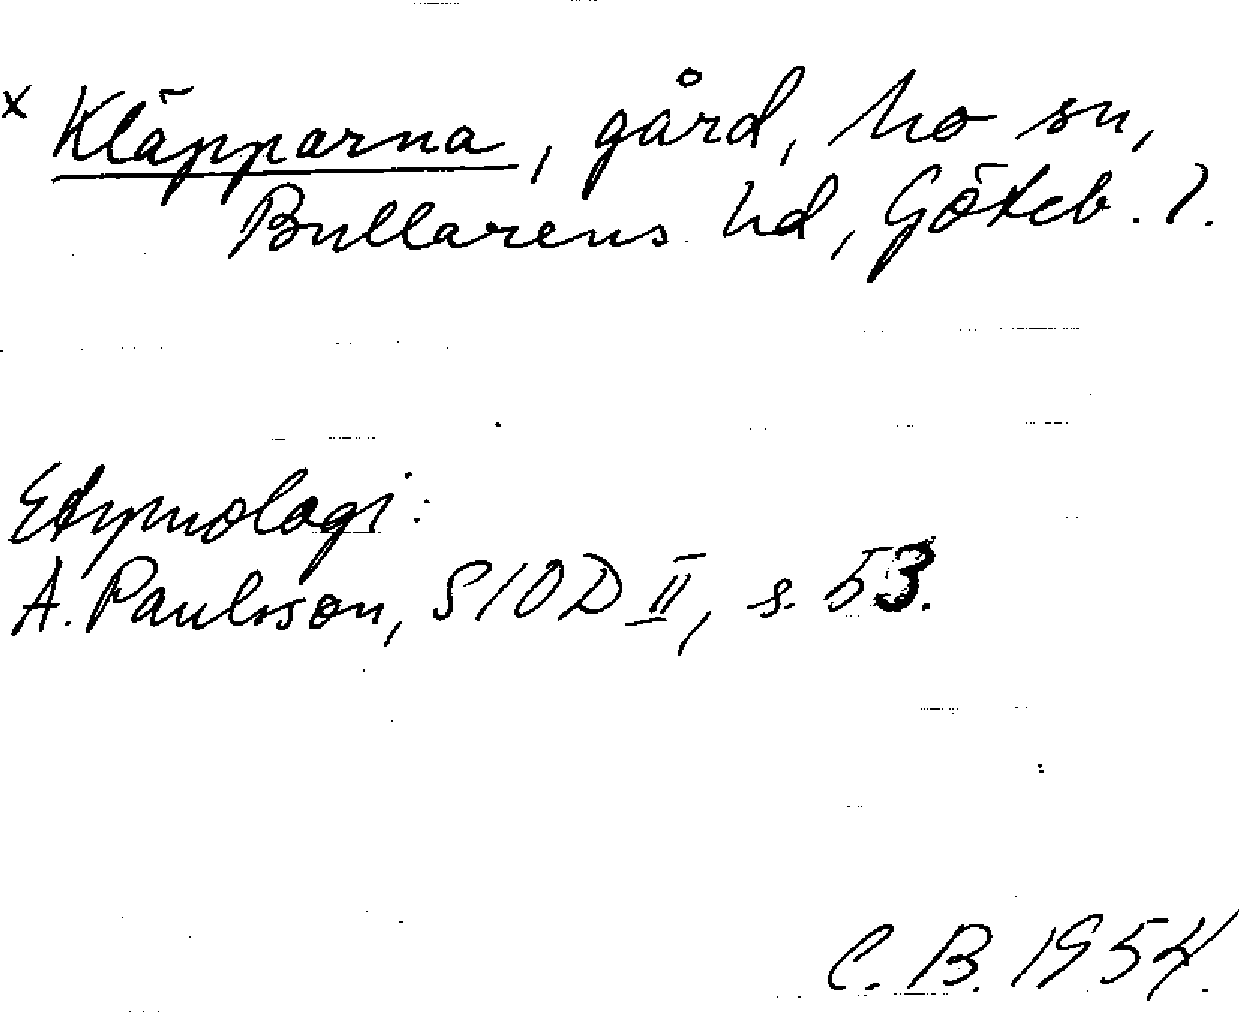 x Kläpparna, gård, Mo sn,
Bullarens hd, Göteb. l.
Etymologi:
A. Paulsson, SIOD II, s. 53.
C. B. 1954.